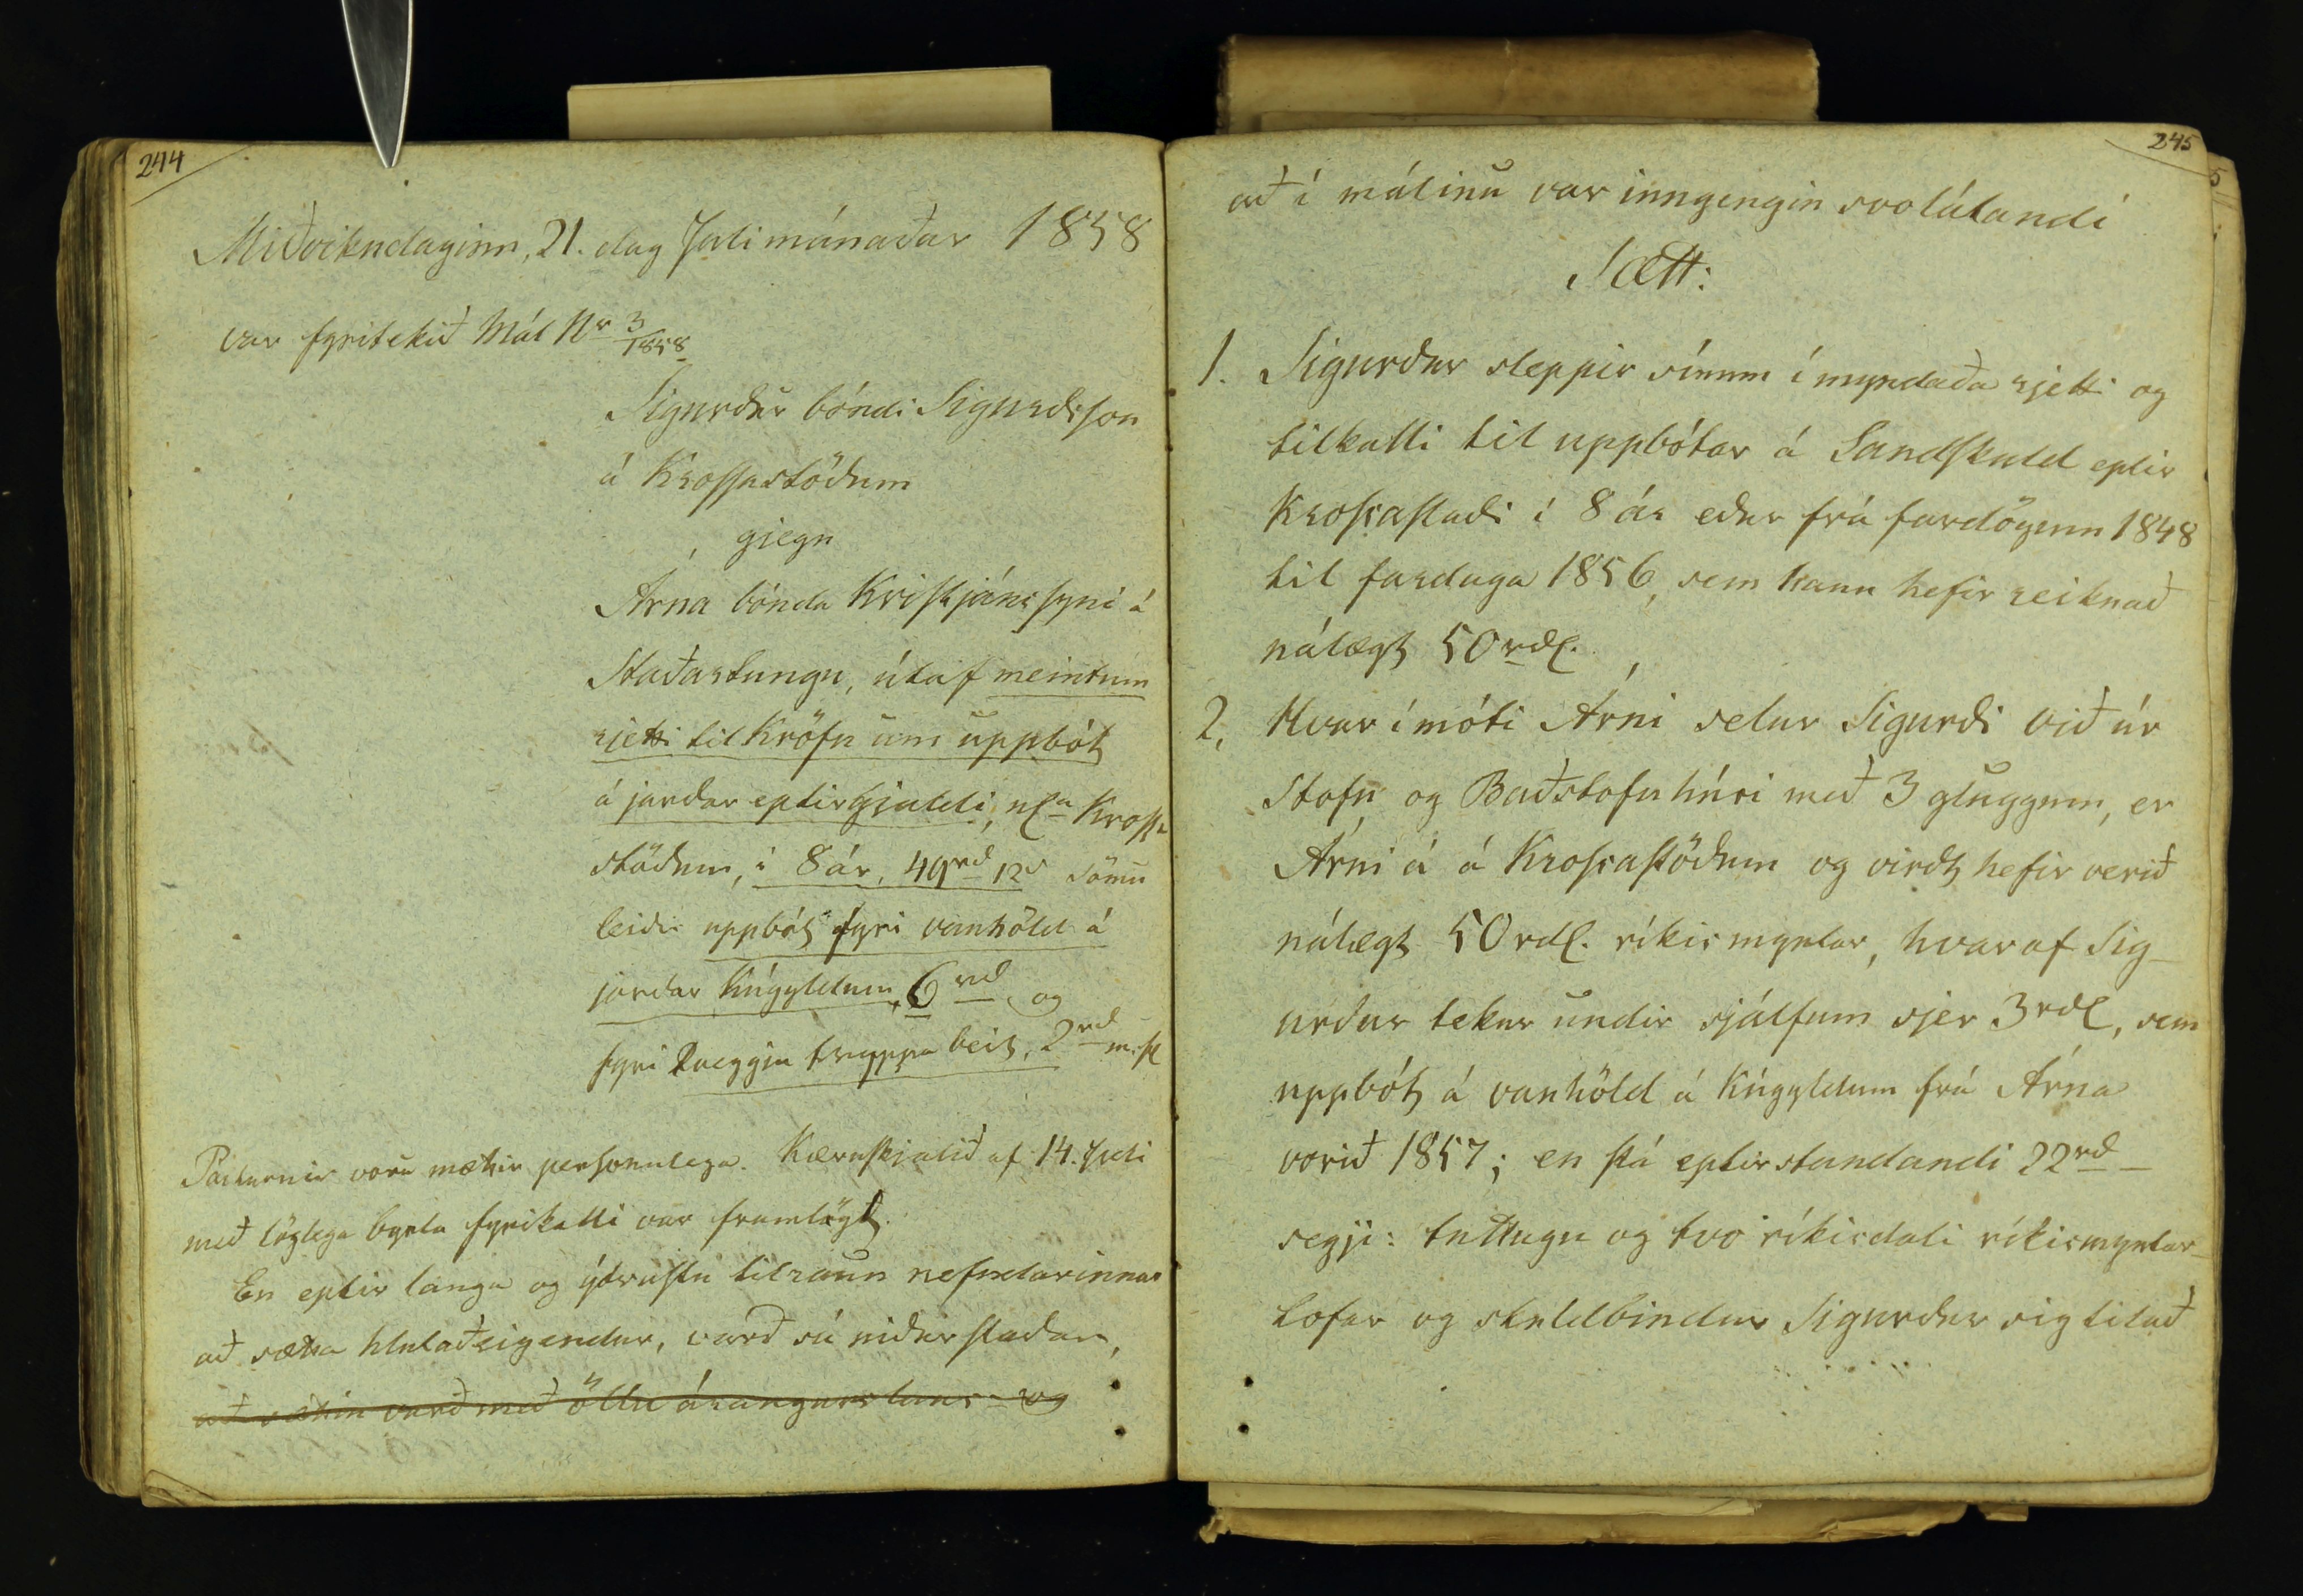 244
Miðvikudaginn, 21. dag Julimánaðar 1858
var fyritekið Mál Nr 3/1858
Sigurður bóndi Sigurdsson
á Krossastöðum
gjegn
Árna bónda Kristjánssyni á
Staðartungu, útaf meintum
rjetti til Kröfu um uppbót
á jarðar eptirgjaldi, nl. á Krossa
stöðum, í 8 ár, 49rd 12s sömu
leiðis uppbót fyri vanhöld á
jarðar kúgyldum, 6rd og
fyri tveggja trippa beit, 2rd m. fl
Partarnir voru mættir persónulega. Kæruskjalið af 14. Juli
með löglega byrtu fyrikalli var framlögt.
En eptir langa og ýtrustu tilraun nefndarinnar
að sætta hlutaðeigendur, varð sú niðurstaðan,
að sættin varð með öllu árangurslaus og
245
að í málinu var inngengin svolátandi
Sætt:
1. Sigurður sleppir sínum ímyndaða rjetti og
tilkalli til uppbótar á Landskuld eptir
Krossastaði í 8 ár eður frá fardögum 1848
til fardaga 1856, sem hann hefir reiknað
nálægt 50rdl.
2. Hvar ímóti Árni selur Sigurði við úr
Stofu og Baðstofuhúsi með 3 gluggum, er
Árni á á Krossastöðum og virdt hefir verið
nálægt 50rdl. ríkismyntar, hvaraf Sig-
urður tekur undir sjálfum sjer 3rdl, sem
uppbót á vanhöld á kúgyldum frá Árna
vorið 1857; en þá eptirstandandi 22rd -
segji: tuttugu og tvo ríkisdali ríkismyntar -
lofar og skuldbindur Sigurður sig til að